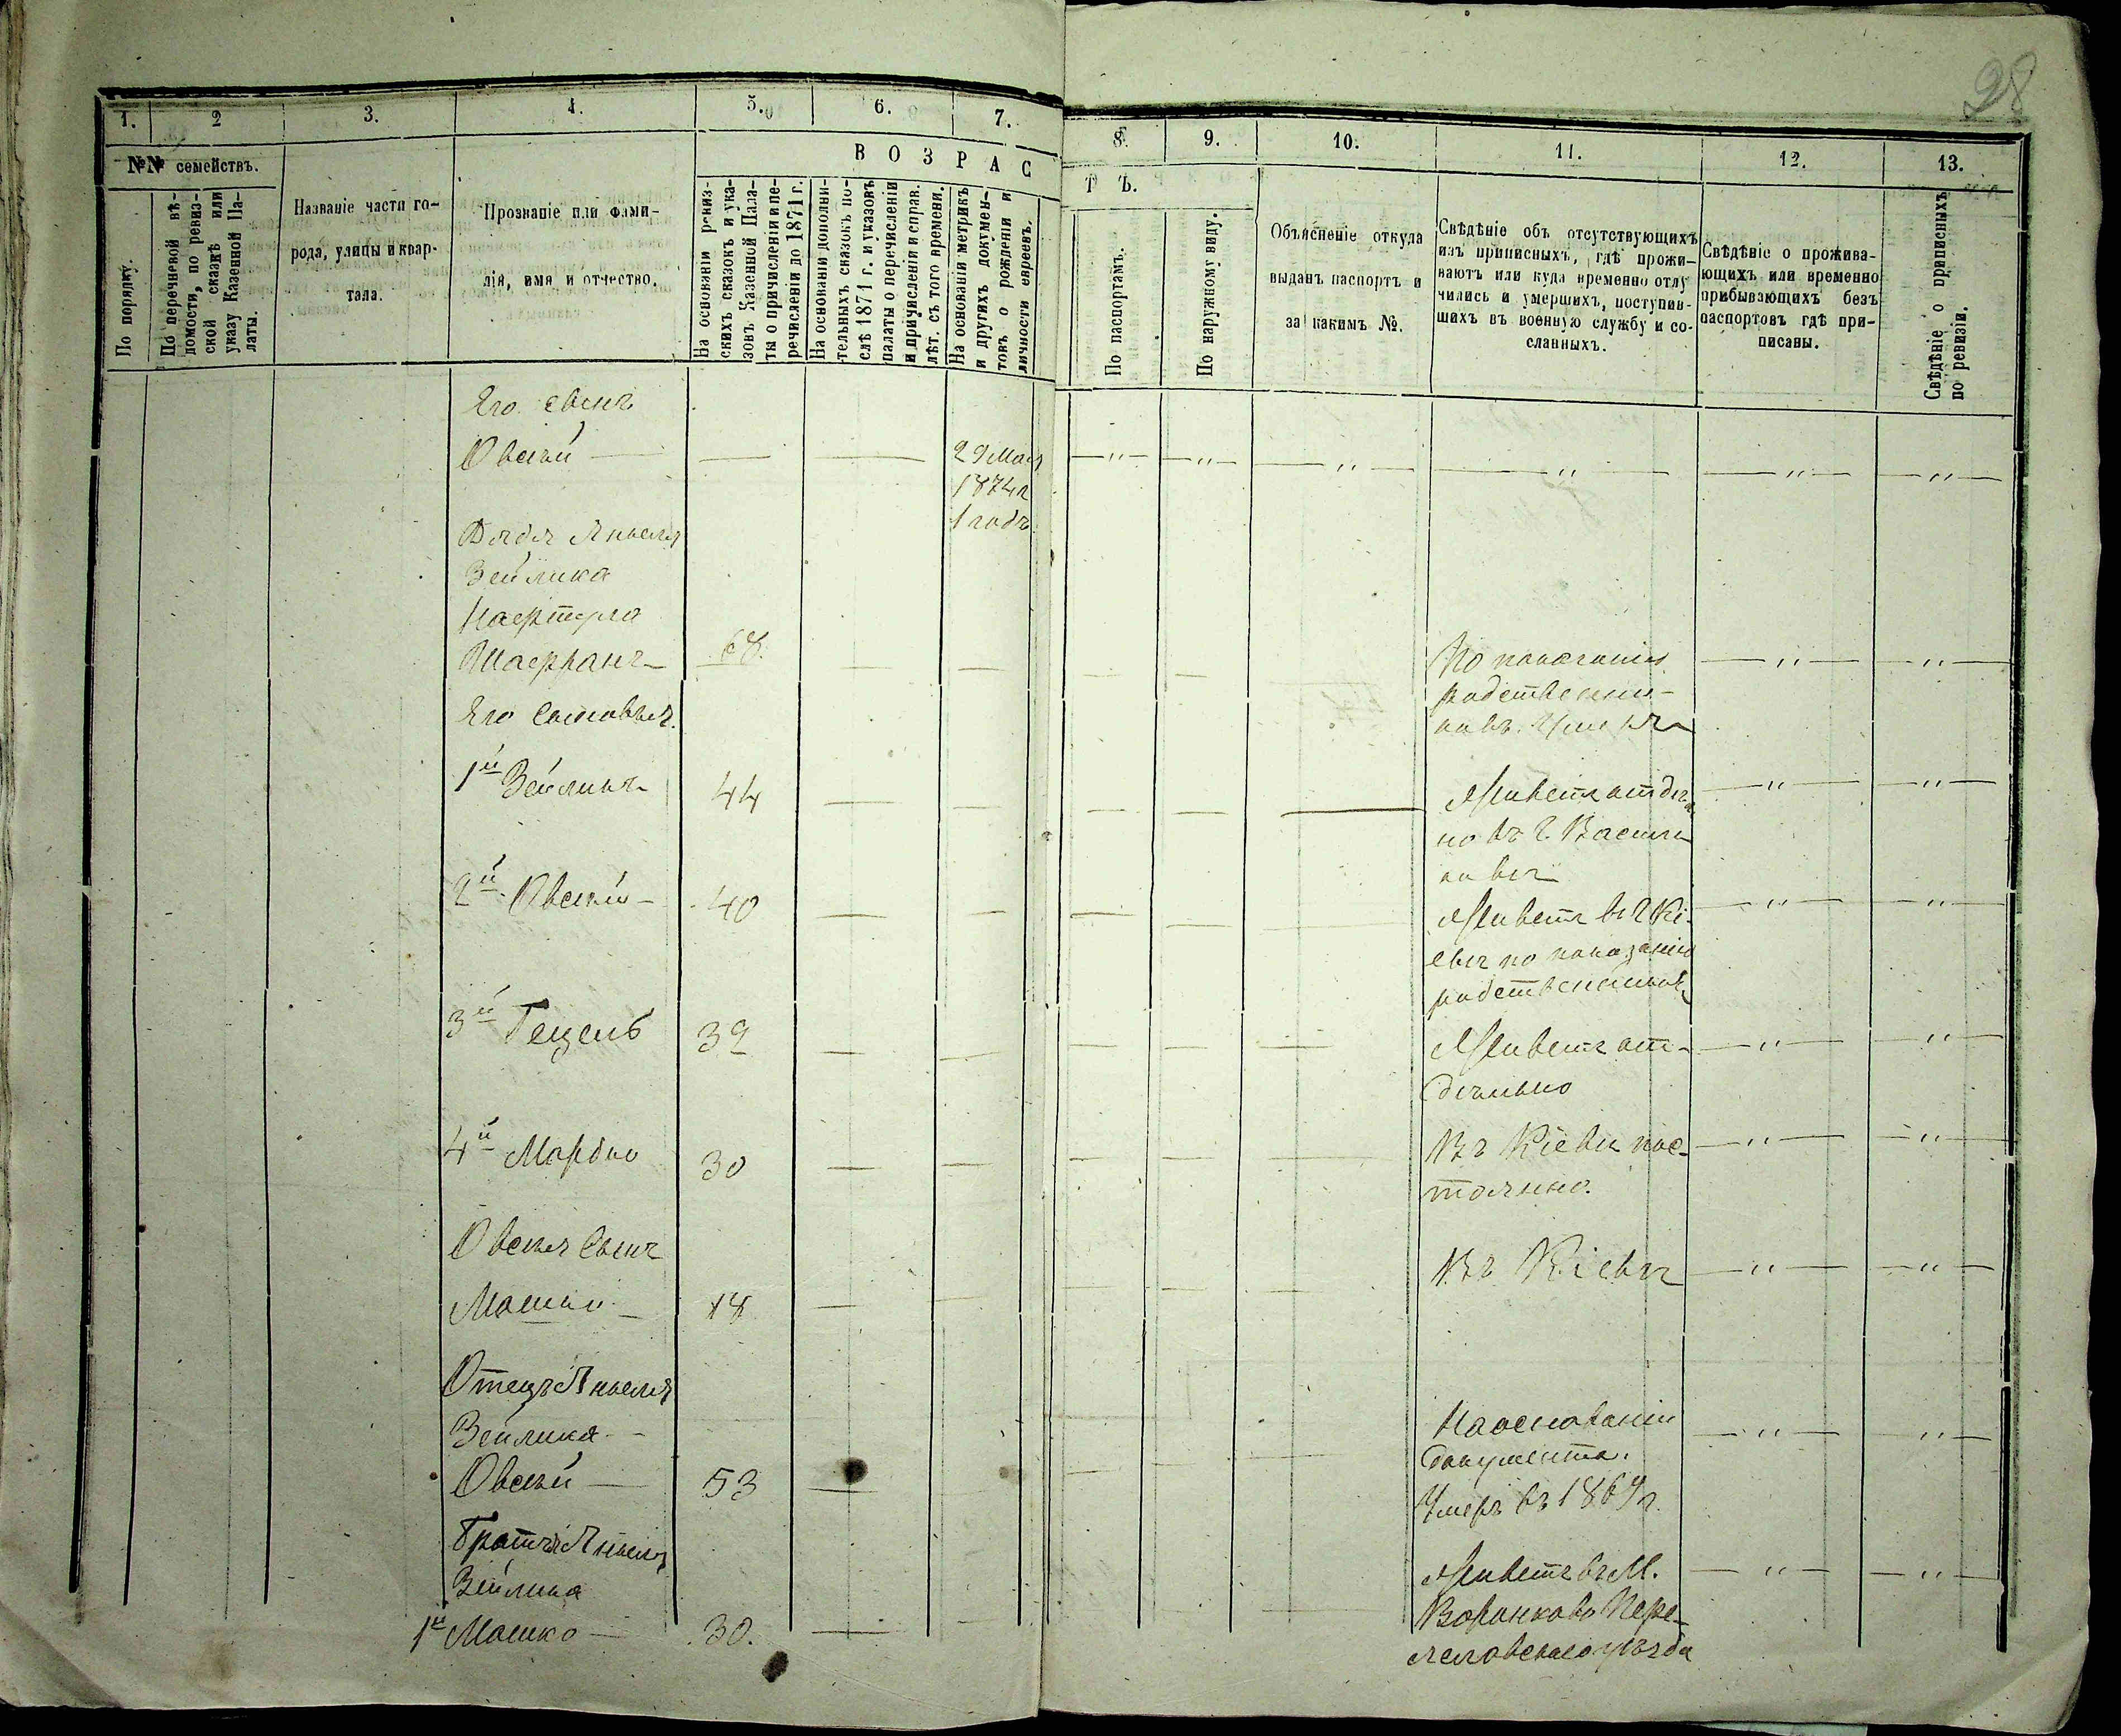 28
1. 2 3. 4. 5. 6. 7. 8. 9. 10. 11. 12. 13.
№№ семействъ.
По порядку.
По перечневой вѣ-
домости, по ревиз-
ской сказкѣ или
указу Казенной Па-
латы.
Названіе части го-
рода, улицы и квар-
тала.
Прозваніе или фами-
лія, имя и отчество.
ВОЗРАС
ТЪ.
На основаніи ревиз-
скихъ сказокъ и ука-
зовъ Казенной Пала-
ты о причисленіи и пе-
речисленіи до 1871 г.
На основаніи дополни-
тельныхъ сказокъ по-
слѣ 1871 г. и указовъ
палаты о перечисленіи
и причисленіи и справ.
лѣт. съ того времени.
На основаніи метрикъ
и другихъ докумен-
товъ о рожденіи и
личности евреевъ.
По паспортамъ.
По наружному виду.
Объясненіе откуда
выданъ паспортъ и
за какимъ №.
Свѣдѣніе объ отсутствующихъ
изъ приписныхъ, гдѣ прожи-
ваютъ или куда временно отлу
чились и умершихъ, поступив-
шихъ въ военную службу и со-
сланныхъ.
Свѣдѣніе о прожива-
ющихъ или временно
прибывающихъ безъ
паспортовъ гдѣ при-
писаны.
Свѣдѣніе о приписныхъ
по ревизіи.
Его сынъ
Овсѣй — — — 29 Мая — " — — " — — " — — " — — " — — " —
1874 г
1 годъ
Дядя Янкеля
Зейлика
Нафтула
Шафранъ — 68. — — — — — По показанію — " — — " —
родственни-
ковъ. Умеръ
Его Сыновья.
1й Зейликъ 44 — — — — — Живетъ отдѣль — " — — " —
но въ г. Василь
ковѣ
2й Овсѣй — 40 — — — — — Живетъ въ г Кі- — " — — " —
евѣ по показанію
родственниковъ
3й Гецель 39 — — — — — Живетъ от- — " — — " —
дѣльно
4й Мордко 30 — — — — — Въ Кіевѣ пос- — " — — " —
тоянно.
Овсѣя Сынъ
Мошко — 18 — — — — — Въ Кіевѣ — " — — " —
Отецъ Янкеля
Зейлика —
Овсѣй — 53 — — — — На основаніи — " — — " —
документа.
Умеръ въ 1869 г.
Братья Янкеля
Зейлика
1й Мошко — 30. — — — Живетъ въ М. — " — — " —
Воронково Пере-
яславскаго уѣзда